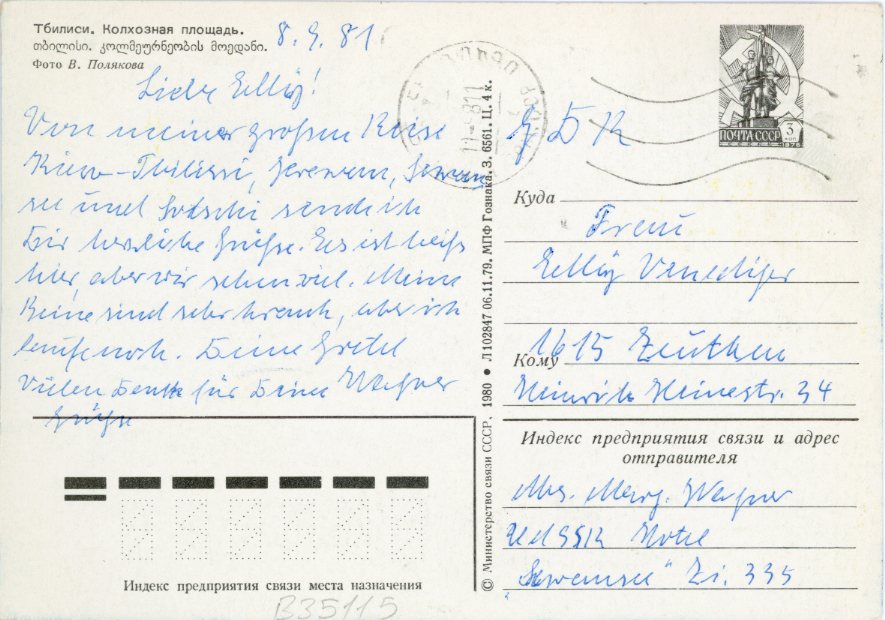 Тбилиси. Колхозная площадь.
თბილისი. კოლმეურნეობის მოედანი.
Фото В. Полякова
8. 9. 81
Liebe Elly!
Von meiner großen Reise
Kiew-Tbilissi, Jerewan, Sewan-
see und Sotschi sende ich
Dir herzliche Grüße. Es ist heiß
hier, aber wir sehen viel. Meine
Beine sind sehr krank, aber ich
laufe noch. Deine Gretel
Vielen Dank für Deine Wagner
Grüße
Индекс предприятия связи места назначения
B35115
© Министерство связи СССР. 1980 • Л102847 06.11.79. МПФ Гознака. З. 6561. Ц. 4 к.
ПОЧТА СССР 3 КОП
1976
DDR
Куда
Frau
Elly Venediger
1615 Zeuthen
Кому
Heinrich Heinestr. 34
Индекс предприятия связи и адрес
отправителя
Abs. Marg. Wagner
UdSSR Hotel
"Sewansee" Zi. 335